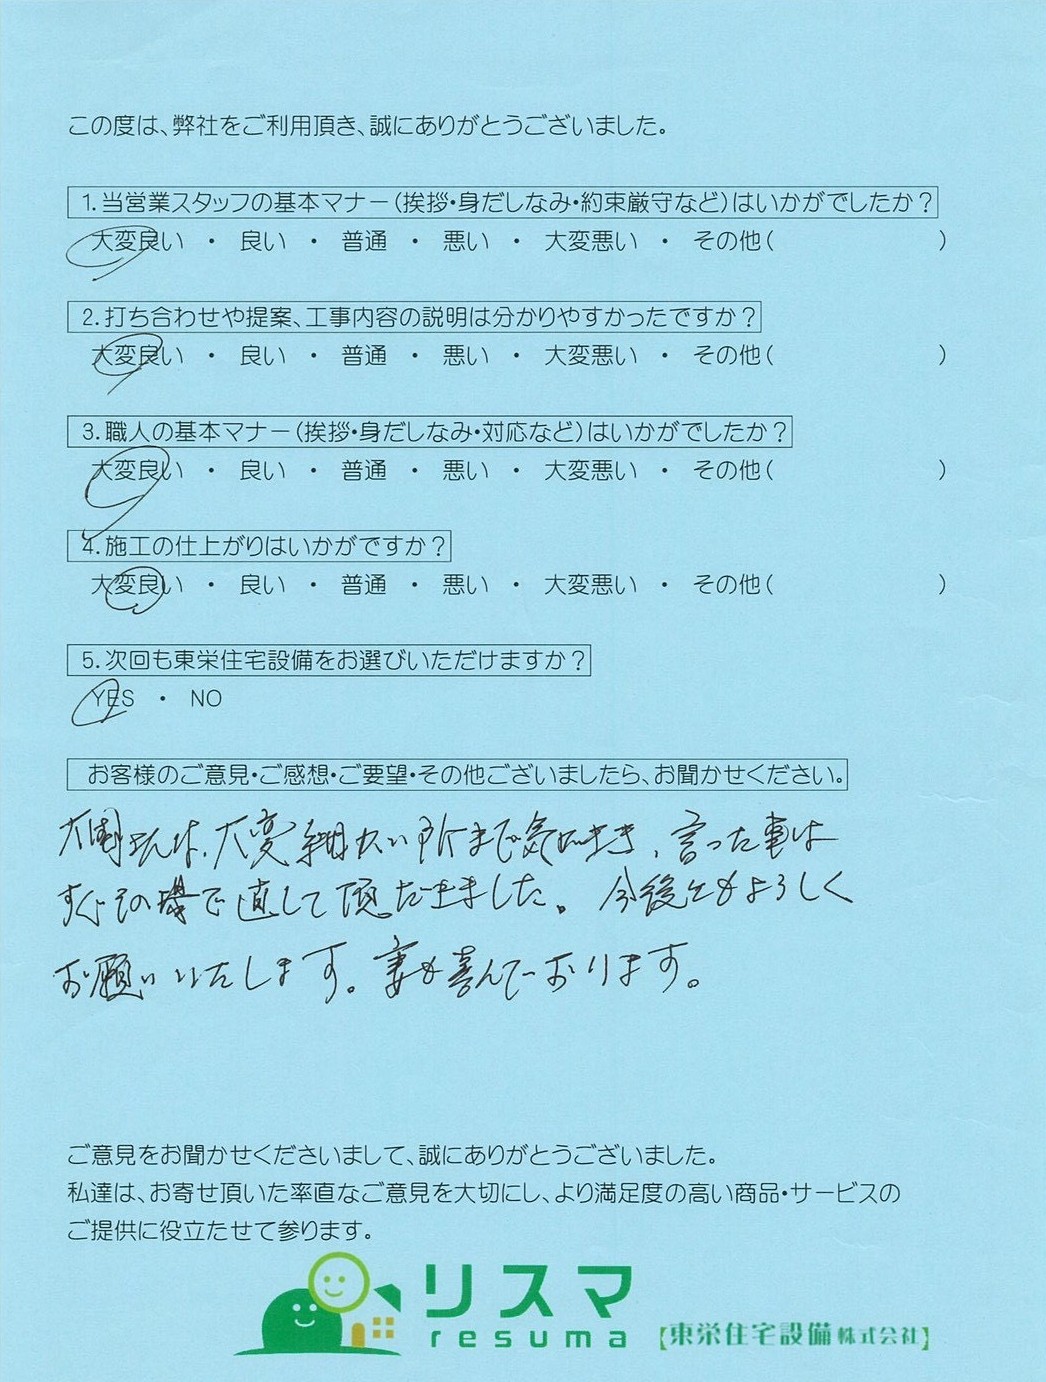 この度は、弊社をご利用頂き、誠にありがとうございました。
1.当営業スタッフの基本マナー(挨拶・身だしなみ・約束厳守など)はいかがでしたか?
大変良い ・ 良い ・ 普通 ・ 悪い ・ 大変悪い ・ その他( )
2.打ち合わせや提案、工事内容の説明は分かりやすかったですか?
大変良い ・ 良い ・ 普通 ・ 悪い ・ 大変悪い ・ その他( )
3.職人の基本マナー(挨拶・身だしなみ・対応など)はいかがでしたか?
大変良い ・ 良い ・ 普通 ・ 悪い ・ 大変悪い ・ その他( )
4.施工の仕上がりはいかがですか?
大変良い ・ 良い ・ 普通 ・ 悪い ・ 大変悪い ・ その他( )
5.次回も東栄住宅設備をお選びいただけますか?
YES ・ NO
お客様のご意見・ご感想・ご要望・その他ございましたら、お聞かせください。
さんは、大変細かい所まで気づき、言った事は
すぐその場で直して頂だきました。今後ともよろしく
お願いいたします。妻も喜んでおります。
ご意見をお聞かせくださいまして、誠にありがとうございました。
私達は、お寄せ頂いた率直なご意見を大切にし、より満足度の高い商品・サービスの
ご提供に役立たせて参ります。
リスマ
resuma
【東栄住宅設備株式会社】